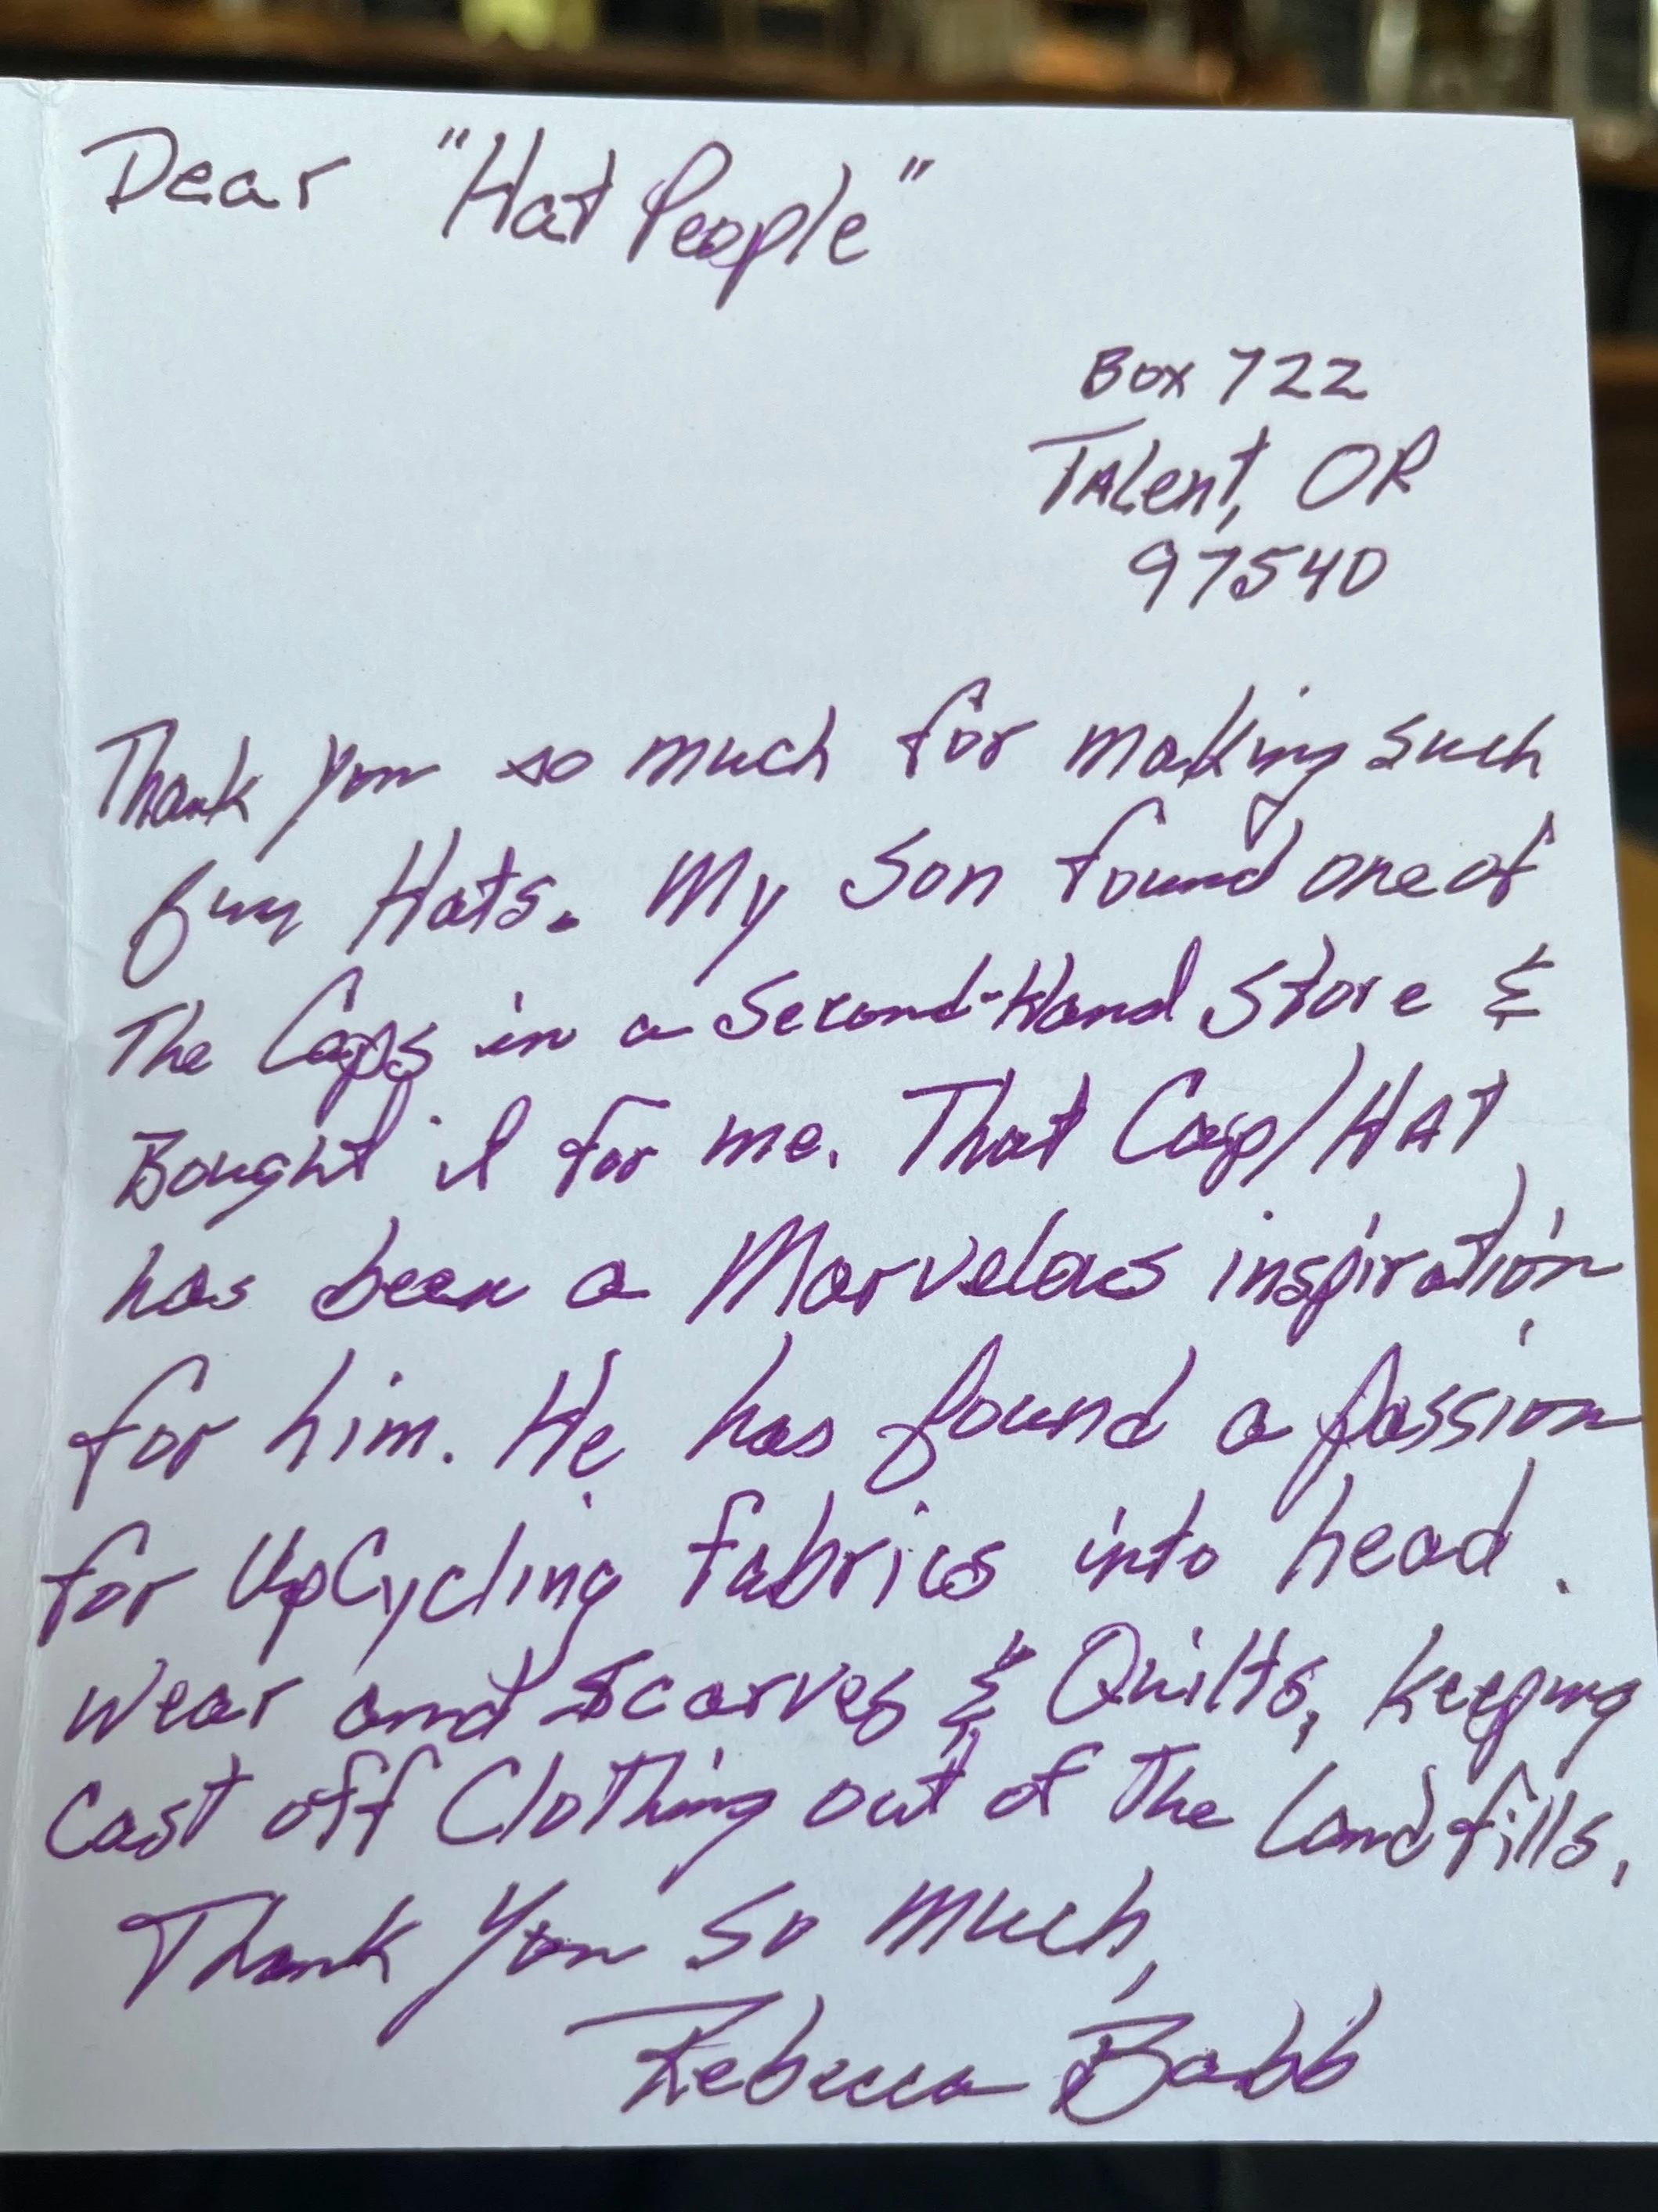 Dear "Hat People"
Box 722
Talent, OR
97540
Thank you so much for making such
fun Hats. My Son found one of
The Caps in a Second-Hand Store &
Bought it for me. That Cap/HAT
has been a Marvelous inspiration
for him. He has found a passion
for UpCycling fabrics into head
wear and scarves & Quilts, keeping
cast off Clothing out of the landfills.
Thank You so much,
Rebecca Babb